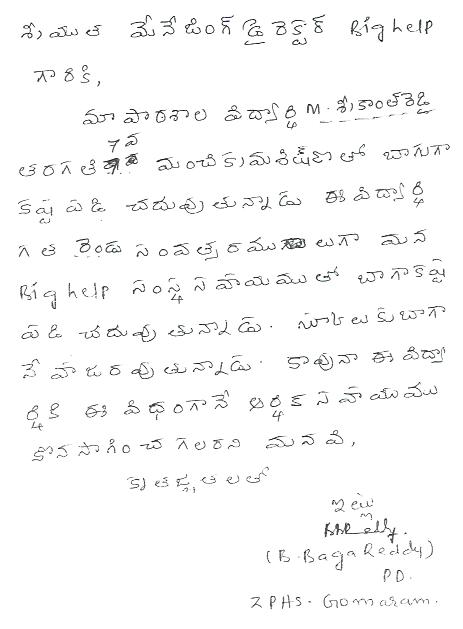 శ్రీయుత మేనేజింగ్ డైరెక్టర్ Big help
గారికి,
మా పాఠశాల విద్యార్థి M. శ్రీకాంత్ రెడ్డి
7వ
తరగతి మంచి క్రమశిక్షణతో బాగుగా
కష్టపడి చదువుతున్నాడు ఈ విద్యార్థి
గత రెండు సంవత్సరములుగా మన
Big help సంస్థ సహాయముతో బాగా కష్ట
పడి చదువుతున్నాడు. స్కూలుకు బాగా
నే హాజరవుతున్నాడు. కావునా ఈ విద్యా
ర్థికి ఈ విధంగానే ఆర్థిక సహాయము
కొనసాగించ గలరని మనవి,
కృతజ్ఞతలతో
ఇట్లు
(B. Baga Reddy)
PD.
ZPHS. Gomaram.